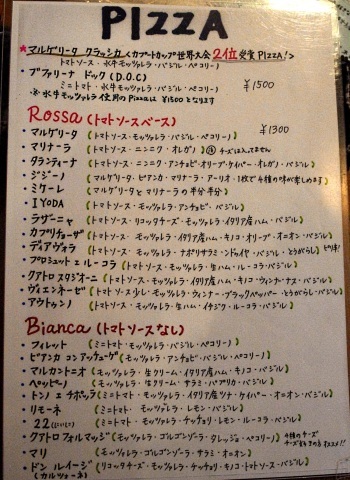 PIZZA
★マルゲリータ クラッシカ <カプートカップ世界大会 2位 受賞 PIZZA!>
トマトソース・水牛モッツァレラ・バジル・ペコリーノ
・ブファリーナ ドック (D.O.C)
ミニトマト・水牛モッツァレラ・バジル・ペコリーノ
¥1500
※水牛モッツァレラ使用のPizzaは ¥1500となります
Rossa (トマトソースベース)
・マルゲリータ (トマトソース・モッツァレラ・バジル・ペコリーノ) ¥1300
・マリナーラ (トマトソース・ニンニク・オレガノ) チーズは入ってません
・タランティーナ (トマトソース・ニンニク・アンチョビ・オリーブ・ケイパー・オレガノ・バジル)
・ジジーノ (マルゲリータ・ビアンカ・マリナーラ・アーリオ・1枚で4種の味が楽しめます)
・ミケーレ (マルゲリータとマリナーラの半分半分)
・IYODA (トマトソース・モッツァレラ・アンチョビ・バジル)
・ラザーニャ (トマトソース・リコッタチーズ・モッツァレラ・イタリア産ハム・バジル)
・カプリチョーザ (トマトソース・モッツァレラ・イタリア産ハム・キノコ・オリーブ・オニオン・バジル)
・ディアヴォラ (トマトソース・モッツァレラ・ナポリサラミ・ンドゥイヤ・バジル・とうがらし) ピリ辛!
・プロシュット エ ルーコラ (トマトソース・モッツァレラ・生ハム・ルーコラ・バジル)
・クアトロ スタジオーニ (トマトソース・モッツァレラ・イタリア産ハム・キノコ・ウィンナー・ナス・バジル)
・ヴィエンネーゼ (トマトソース少し・モッツァレラ・ウィンナー・ブラックペッパー・とうがらし・バジル)
・アウトゥンノ (トマトソース・モッツァレラ・生ハム・イチジク・ルーコラ・バジル)
Bianca (トマトソースなし)
・フィレット (ミニトマト・モッツァレラ・バジル・ペコリーノ)
・ビアンカ コン アッチューゲ (モッツァレラ・アンチョビ・バジル・ペコリーノ)
・マルカントニオ (モッツァレラ・生クリーム・イタリア産ハム・キノコ・バジル)
・ペッピーノ (モッツァレラ・生クリーム・サラミ・パプリカ・バジル)
・トンノ エ チポッラ (ミニトマト・モッツァレラ・イタリア産ツナ・ケイパー・オニオン・バジル)
・リモーネ (ミニトマト・モッツァレラ・レモン・バジル)
・22(にいに) (ミニトマト・モッツァレラ・ケッチョリ・レモン・ルーコラ・バジル)
・クアトロ フォルマッジ (モッツァレラ・ゴルゴンゾーラ・タレッジョ・ペコリーノ) 4種のチーズ チーズ好きの方オススメ!!
・マリ (モッツァレラ・ゴルゴンゾーラ・サラミ・オニオン)
・ドン ルイージ (リコッタチーズ・モッツァレラ・ケッチョリ・キノコ・トマトソース・バジル)
(カルツォーネ)